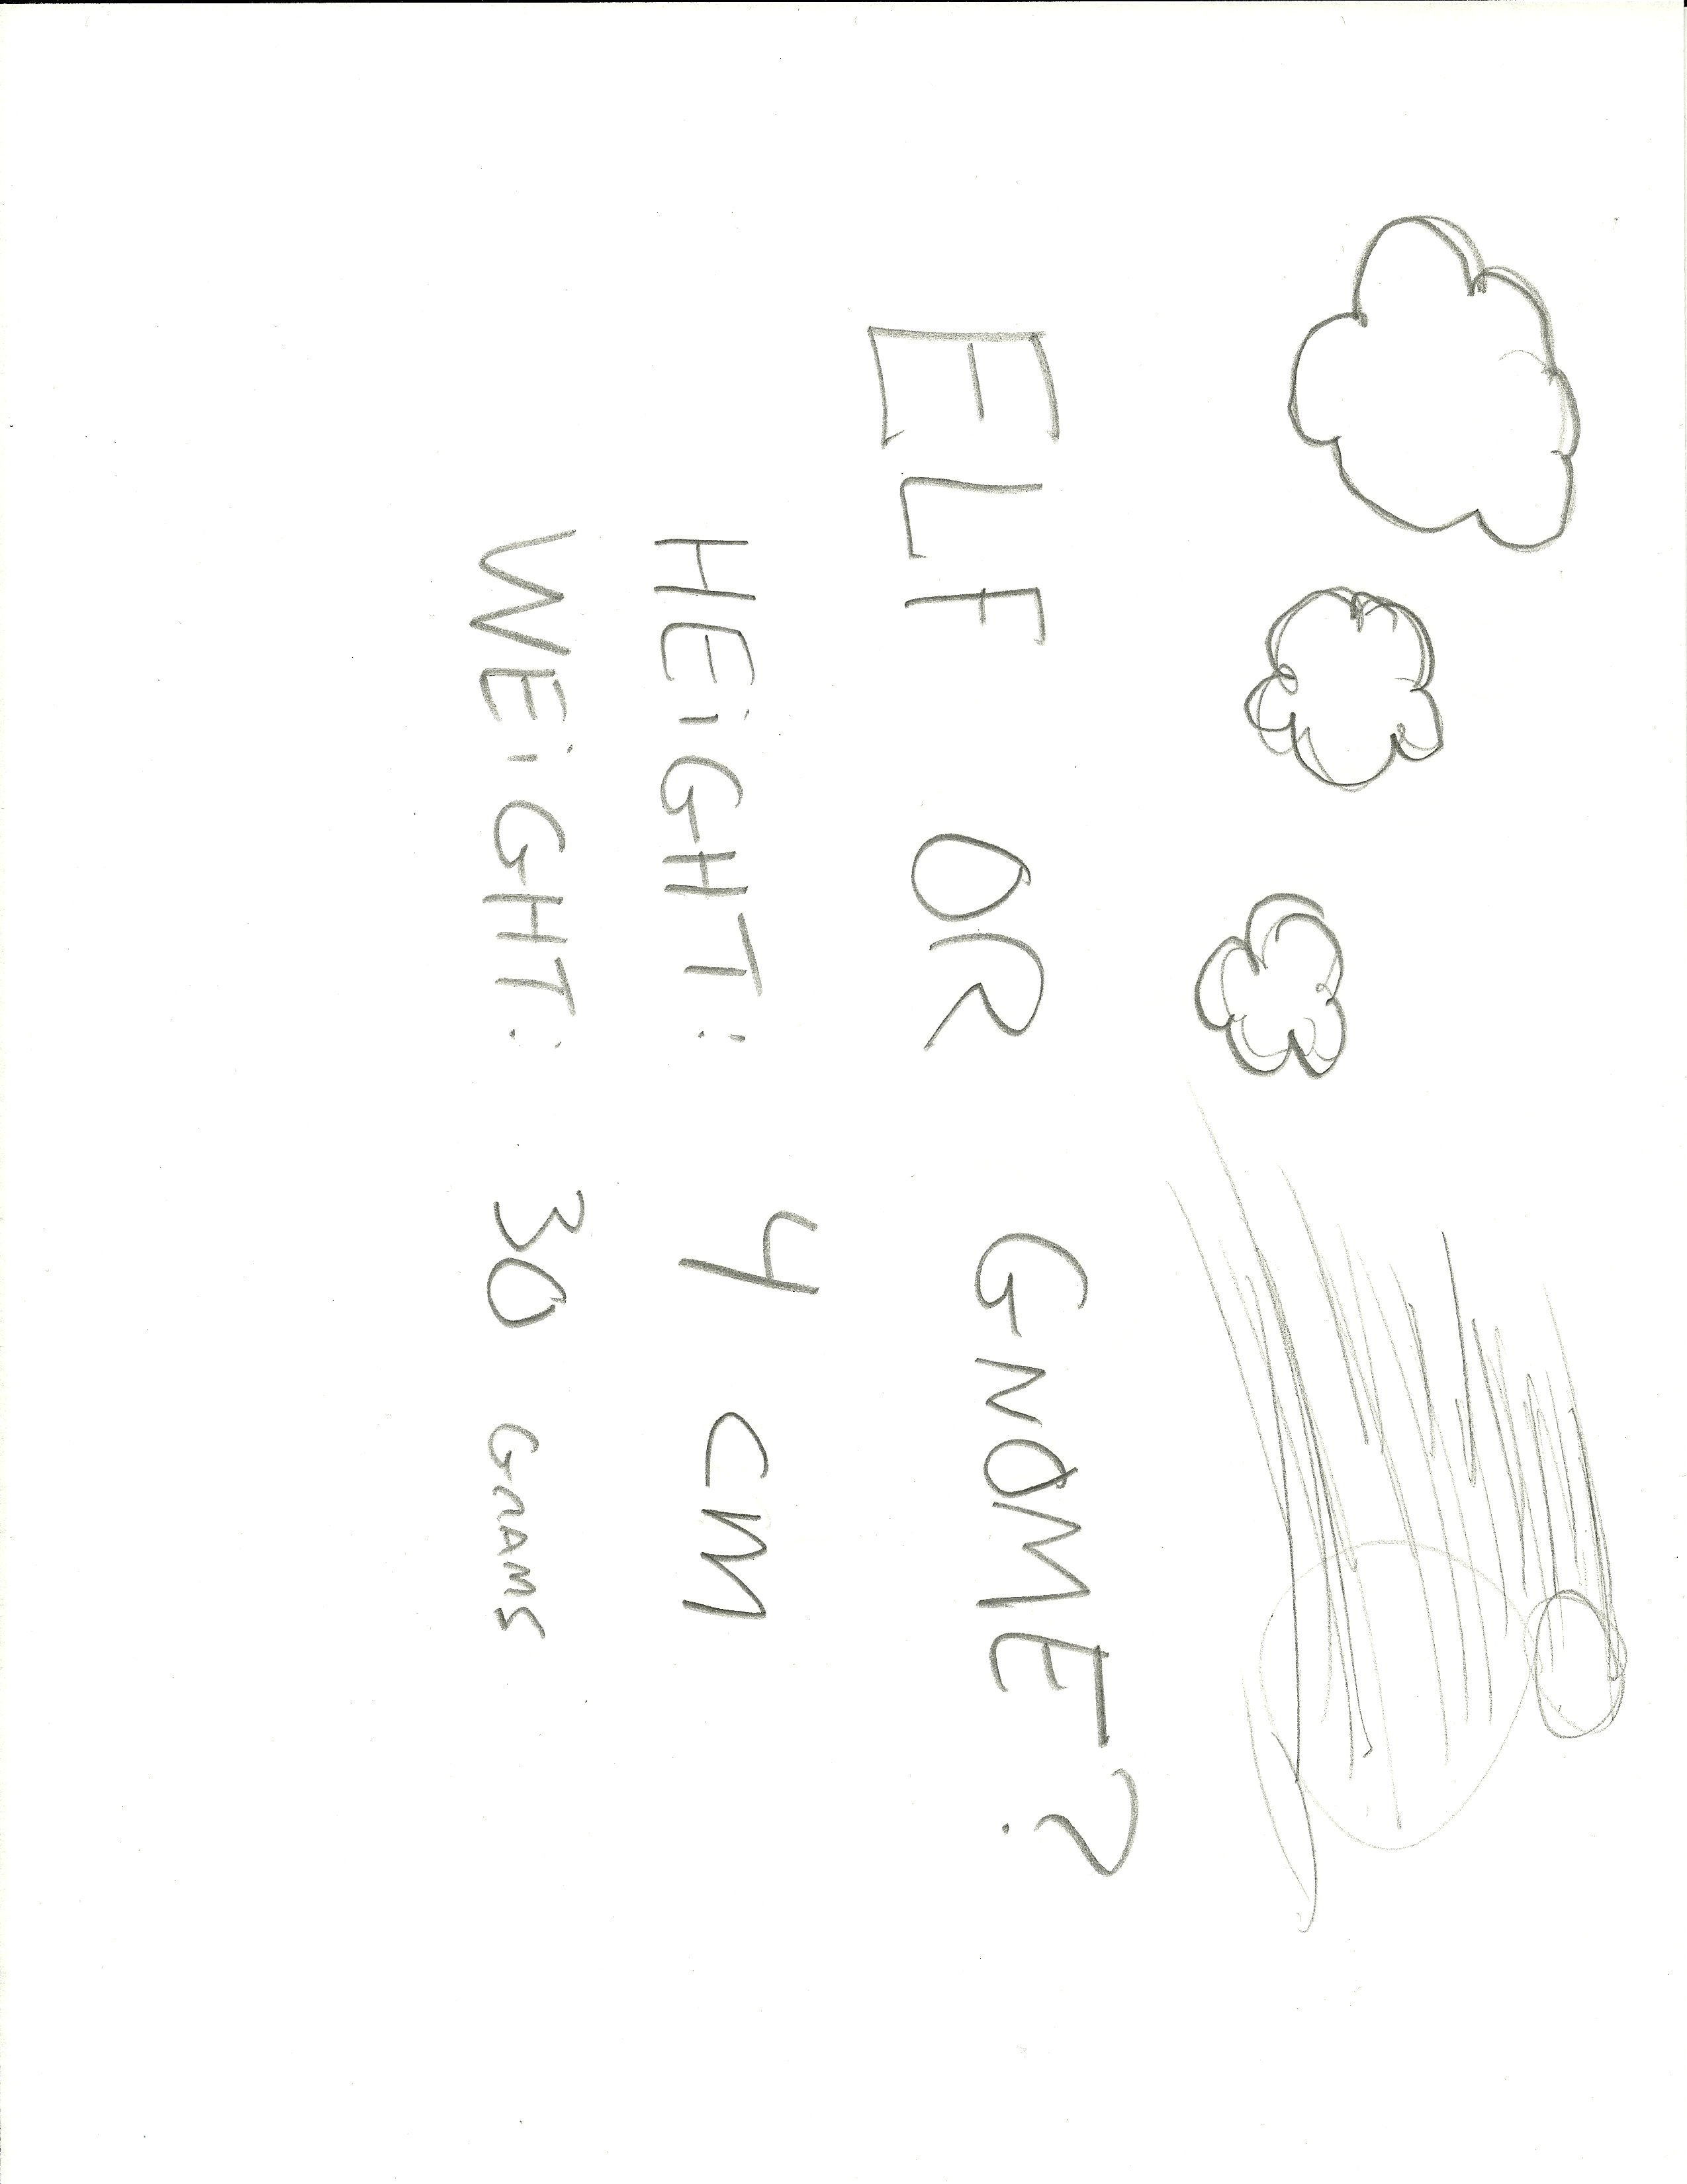 ELF OR GNOME?
HEiGHT: 4 CM
WEiGHT: 30 GRAMS